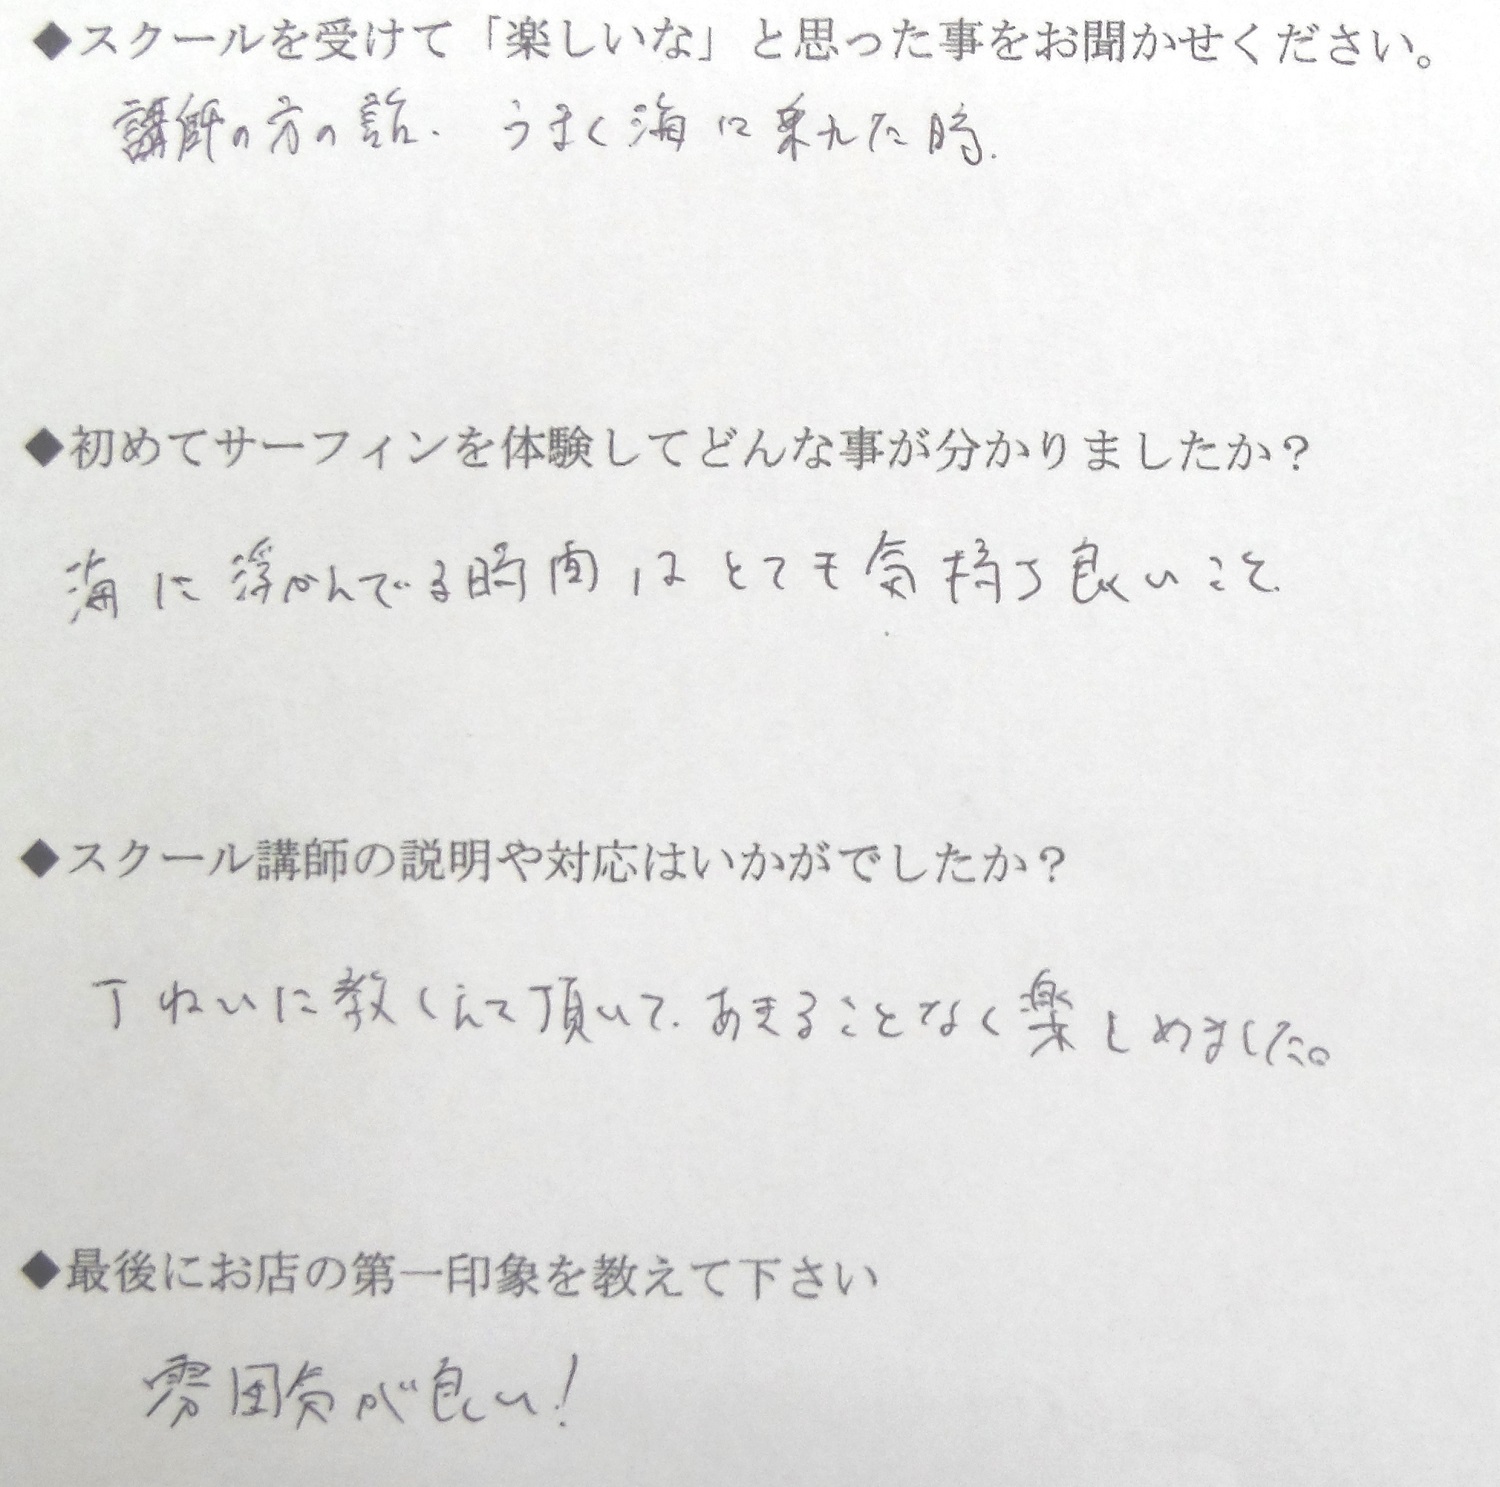 ◆スクールを受けて「楽しいな」と思った事をお聞かせください。
講師の方の話. うまく海に乗れた時.
◆初めてサーフィンを体験してどんな事が分かりましたか？
海に浮かんでる時間はとても気持ち良いこと.
◆スクール講師の説明や対応はいかがでしたか？
丁ねいに教しえて頂いて. あきることなく楽しめました。
◆最後にお店の第一印象を教えて下さい
雰囲気が良い!